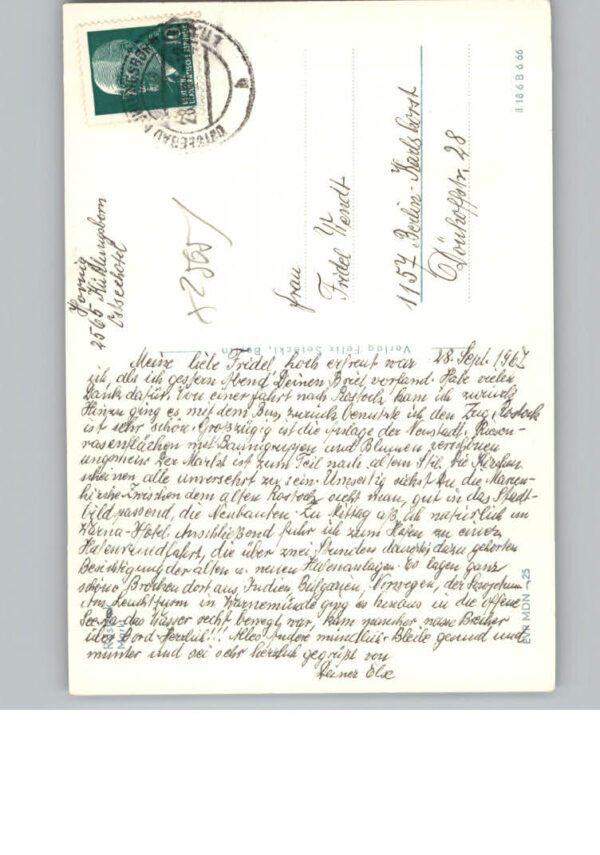 II 18 6 B 6 66
Hornig
2565 Kühlungsborn
Ostseehotel
x 2565
Frau
Fridel Wendt
1157 Berlin-Karlshorst
Dönhoffstr. 28
Verlag Felix Setecki, Berlin
28. Sept. 1967
Meine liebe Fridel, hoch erfreut war
ich, als ich gestern Abend Deinen Brief vorfand. Habe vielen
Dank dafür. Von einer Fahrt nach Rostock kam ich zurück.
Hinzu ging es mit dem Bus, zurück benutzte ich den Zug. Rostock
ist sehr schön. Großzügig ist die Anlage der Neustadt. Riesen-
rasenflächen mit Baumgruppen und Blumen verschönen
ungemein. Der Markt ist zum Teil nach altem Stil. Die Kirchen
scheinen alle unversehrt zu sein. Umseitig siehst Du die Marien-
kirche. Zwischen dem alten Rostock sieht man, gut in das Stadt-
bild passend, die Neubauten. Zu Mittag aß ich natürlich im
Warna-Hotel. Anschließend fuhr ich zum Hafen zu einer
Hafenrundfahrt, die über zwei Stunden dauerte, dazu gehörten
Besichtigung der alten u. neuen Hafenanlagen. Es lagen ganz
schöne Brocken dort aus Indien, Bulgarien, Norwegen, der
Am Leuchtturm in Warnemünde ging es hinaus in die offene
See, da das Wasser recht bewegt war, kam mancher nasse Brecher
über Bord. Herrlich!! Alles Andere mündlich. Bleibe gesund und
munter und sei sehr herzlich gegrüßt von
Deiner Else
Rostock
Markt
EVP MDN -,25